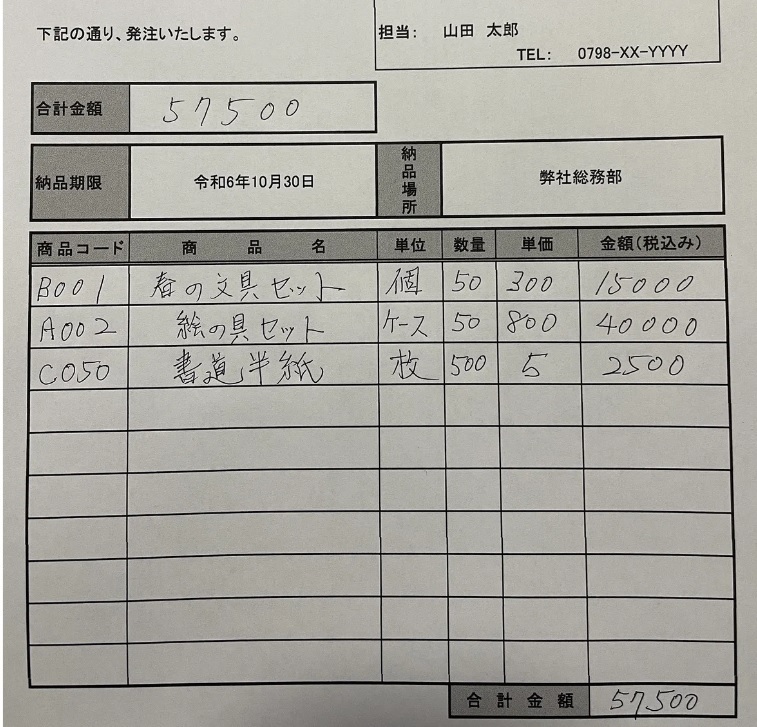 下記の通り、発注いたします。
担当: 山田 太郎
TEL: 0798-XX-YYYY
合計金額 57500
納品期限 令和6年10月30日 納品場所 弊社総務部
商品コード 商品名 単位 数量 単価 金額(税込み)
B001 春の文具セット 個 50 300 15000
A002 絵の具セット ケース 50 800 40000
C050 書道半紙 枚 500 5 2500
合計金額 57500